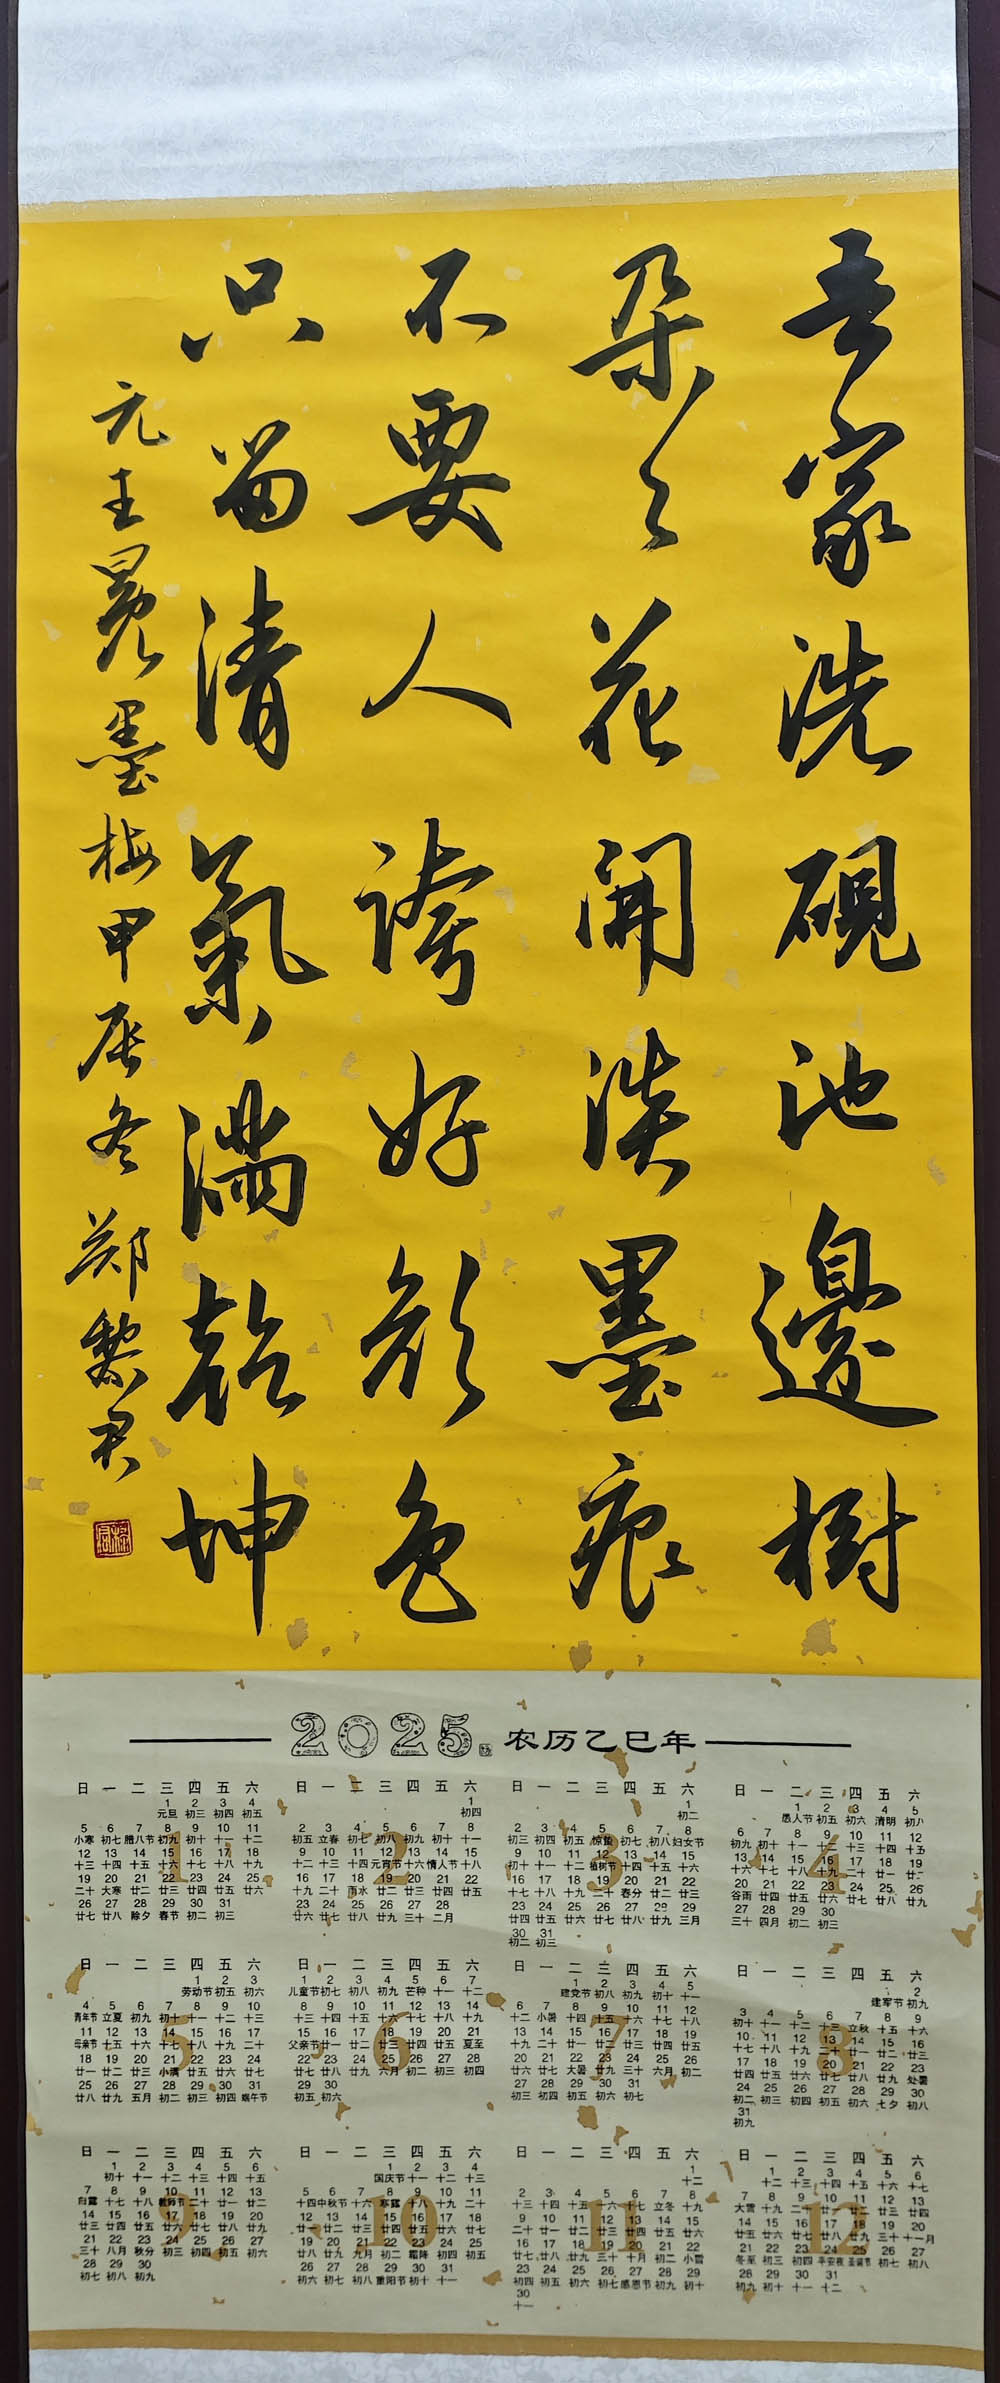 吾家洗硯池邊樹
朵々花開淡墨痕
不要人誇好颜色
只留清氣滿乾坤
元王冕墨梅甲辰冬郑黎君
2025 农历乙巳年
1
日 一 二 三 四 五 六
1 2 3 4
元旦 初三 初四 初五
5 6 7 8 9 10 11
小寒 初七 腊八节 初九 初十 十一 十二
12 13 14 15 16 17 18
十三 十四 十五 十六 十七 十八 十九
19 20 21 22 23 24 25
二十 大寒 廿二 廿三 廿四 廿五 廿六
26 27 28 29 30 31
廿七 廿八 除夕 春节 初二 初三
2
日 一 二 三 四 五 六
1
初四
2 3 4 5 6 7 8
初五 立春 初七 初八 初九 初十 十一
9 10 11 12 13 14 15
十二 十三 十四 元宵节 十六 情人节 十八
16 17 18 19 20 21 22
十九 二十 雨水 廿二 廿三 廿四 廿五
23 24 25 26 27 28
廿六 廿七 廿八 廿九 三十 二月
3
日 一 二 三 四 五 六
1
初二
2 3 4 5 6 7 8
初三 初四 初五 惊蛰 初七 初八 妇女节
9 10 11 12 13 14 15
初十 十一 十二 植树节 十四 十五 十六
16 17 18 19 20 21 22
十七 十八 十九 二十 春分 廿二 廿三
23 24 25 26 27 28 29
廿四 廿五 廿六 廿七 廿八 廿九 三月
30 31
初二 初三
4
日 一 二 三 四 五 六
1 2 3 4 5
愚人节 初五 初六 清明 初八
6 7 8 9 10 11 12
初九 初十 十一 十二 十三 十四 十五
13 14 15 16 17 18 19
十六 十七 十八 十九 二十 廿一 廿二
20 21 22 23 24 25 26
谷雨 廿四 廿五 廿六 廿七 廿八 廿九
27 28 29 30
三十 四月 初二 初三
5
日 一 二 三 四 五 六
1 2 3
劳动节 初五 初六
4 5 6 7 8 9 10
青年节 立夏 初九 初十 十一 十二 十三
11 12 13 14 15 16 17
母亲节 十五 十六 十七 十八 十九 二十
18 19 20 21 22 23 24
廿一 廿二 廿三 小满 廿五 廿六 廿七
25 26 27 28 29 30 31
廿八 廿九 五月 初二 初三 初四 端午节
6
日 一 二 三 四 五 六
1 2 3 4 5 6 7
儿童节 初七 初八 初九 芒种 十一 十二
8 9 10 11 12 13 14
十三 十四 十五 十六 十七 十八 十九
15 16 17 18 19 20 21
父亲节 廿一 廿二 廿三 廿四 廿五 夏至
22 23 24 25 26 27 28
廿七 廿八 廿九 六月 初二 初三 初四
29 30
初五 初六
7
日 一 二 三 四 五 六
1 2 3 4 5
建党节 初八 初九 初十 十一
6 7 8 9 10 11 12
十二 小暑 十四 十五 十六 十七 十八
13 14 15 16 17 18 19
十九 二十 廿一 廿二 廿三 廿四 廿五
20 21 22 23 24 25 26
廿六 廿七 大暑 廿九 三十 六月 初二
27 28 29 30 31
初三 初四 初五 初六 初七
8
日 一 二 三 四 五 六
2
建军节 初九
3 4 5 6 7 8 9
初十 十一 十二 十三 立秋 十五 十六
10 11 12 13 14 15 16
十七 十八 十九 二十 廿一 廿二 廿三
17 18 19 20 21 22 23
廿四 廿五 廿六 廿七 廿八 廿九 处暑
24 25 26 27 28 29 30
初二 初三 初四 初五 初六 七夕 初八
31
初九
9
日 一 二 三 四 五 六
1 2 3 4 5 6
初十 十一 十二 十三 十四 十五
7 8 9 10 11 12 13
白露 十七 十八 教师节 二十 廿一 廿二
14 15 16 17 18 19 20
廿三 廿四 廿五 廿六 廿七 廿八 廿九
21 22 23 24 25 26 27
三十 八月 秋分 初三 初四 初五 初六
28 29 30
初七 初八 初九
10
日 一 二 三 四 五 六
1 2 3 4
国庆节 十一 十二 十三
5 6 7 8 9 10 11
十四 中秋节 十六 寒露 十八 十九 二十
12 13 14 15 16 17 18
廿一 廿二 廿三 廿四 廿五 廿六 廿七
19 20 21 22 23 24 25
廿八 廿九 九月 初二 霜降 初四 初五
26 27 28 29 30 31
初六 初七 初八 重阳节 初十 十一
11
日 一 二 三 四 五 六
1
十二
2 3 4 5 6 7 8
十三 十四 十五 十六 十七 立冬 十九
9 10 11 12 13 14 15
二十 廿一 廿二 廿三 廿四 廿五 廿六
16 17 18 19 20 21 22
廿七 廿八 廿九 三十 十月 初二 小雪
23 24 25 26 27 28 29
初四 初五 初六 初七 感恩节 初九 初十
30
十一
12
日 一 二 三 四 五 六
1 2 3 4 5 6
十二 十三 十四 十五 十六 十七
7 8 9 10 11 12 13
大雪 十九 二十 廿一 廿二 廿三 廿四
14 15 16 17 18 19 20
廿五 廿六 廿七 廿八 廿九 三十 十一月
21 22 23 24 25 26 27
冬至 初三 初四 平安夜 圣诞节 初七 初八
28 29 30 31
初九 初十 十一 十二